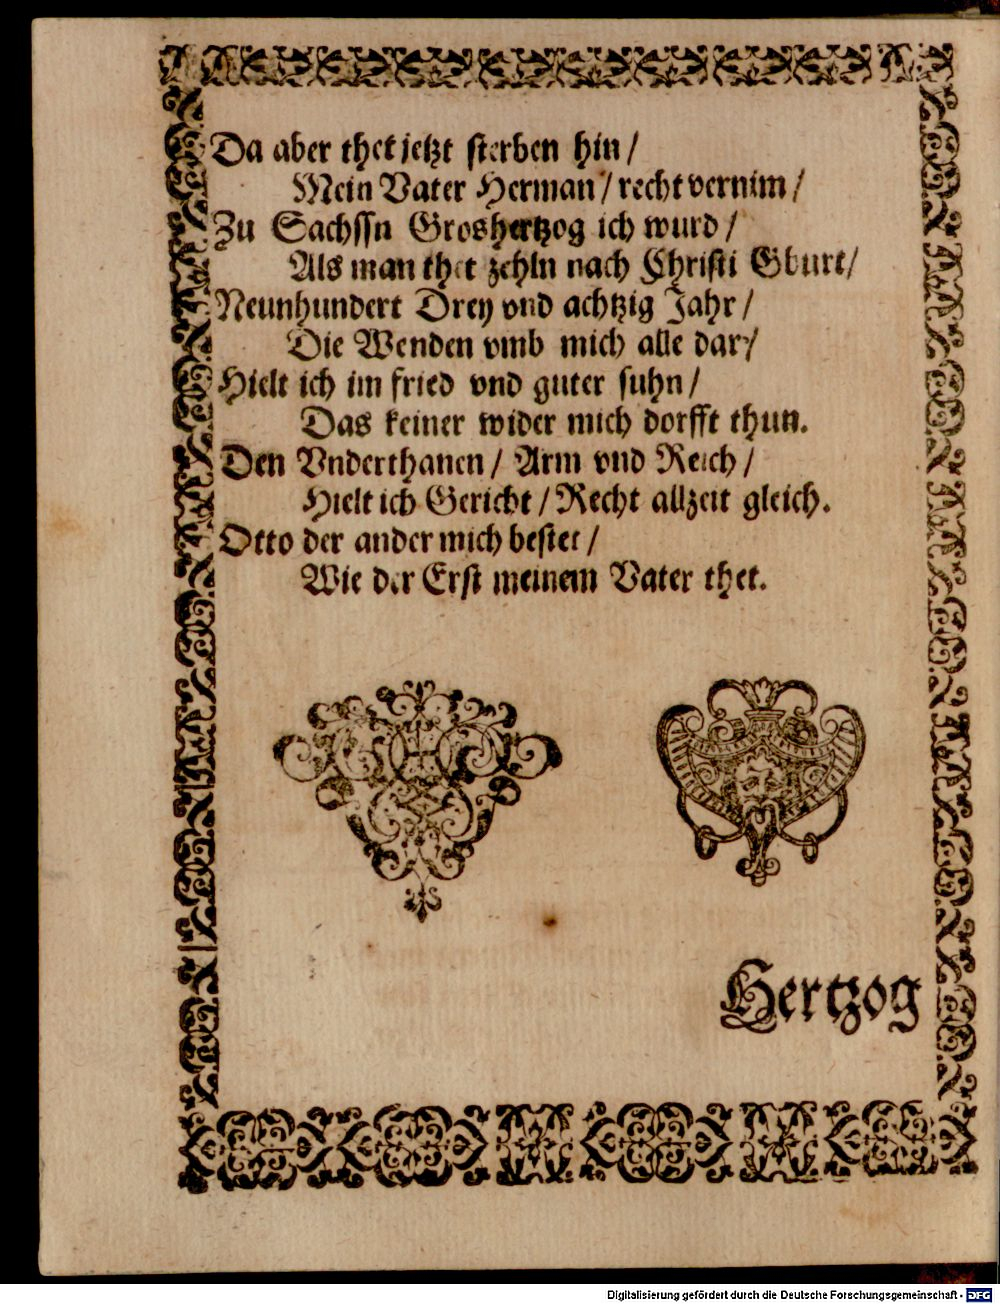 Da aber thet jetzt sterben hin /
Mein Vater Herman / recht vernim /
Zu Sachssn Groshertzog ich wurd /
Als man thet zehln nach Christi Gburt /
Neunhundert Drey vnd achtzig Jahr /
Die Wenden vmb mich alle dar /
Hielt ich im fried vnd guter suhn /
Das keiner wider mich dorfft thun.
Den Vnderthanen / Arm vnd Reich /
Hielt ich Gericht / Recht allzeit gleich.
Otto der ander mich bestet /
Wie der Erst meinem Vater thet.
Hertzog
Digitalisierung gefördert durch die Deutsche Forschungsgemeinschaft - DFG